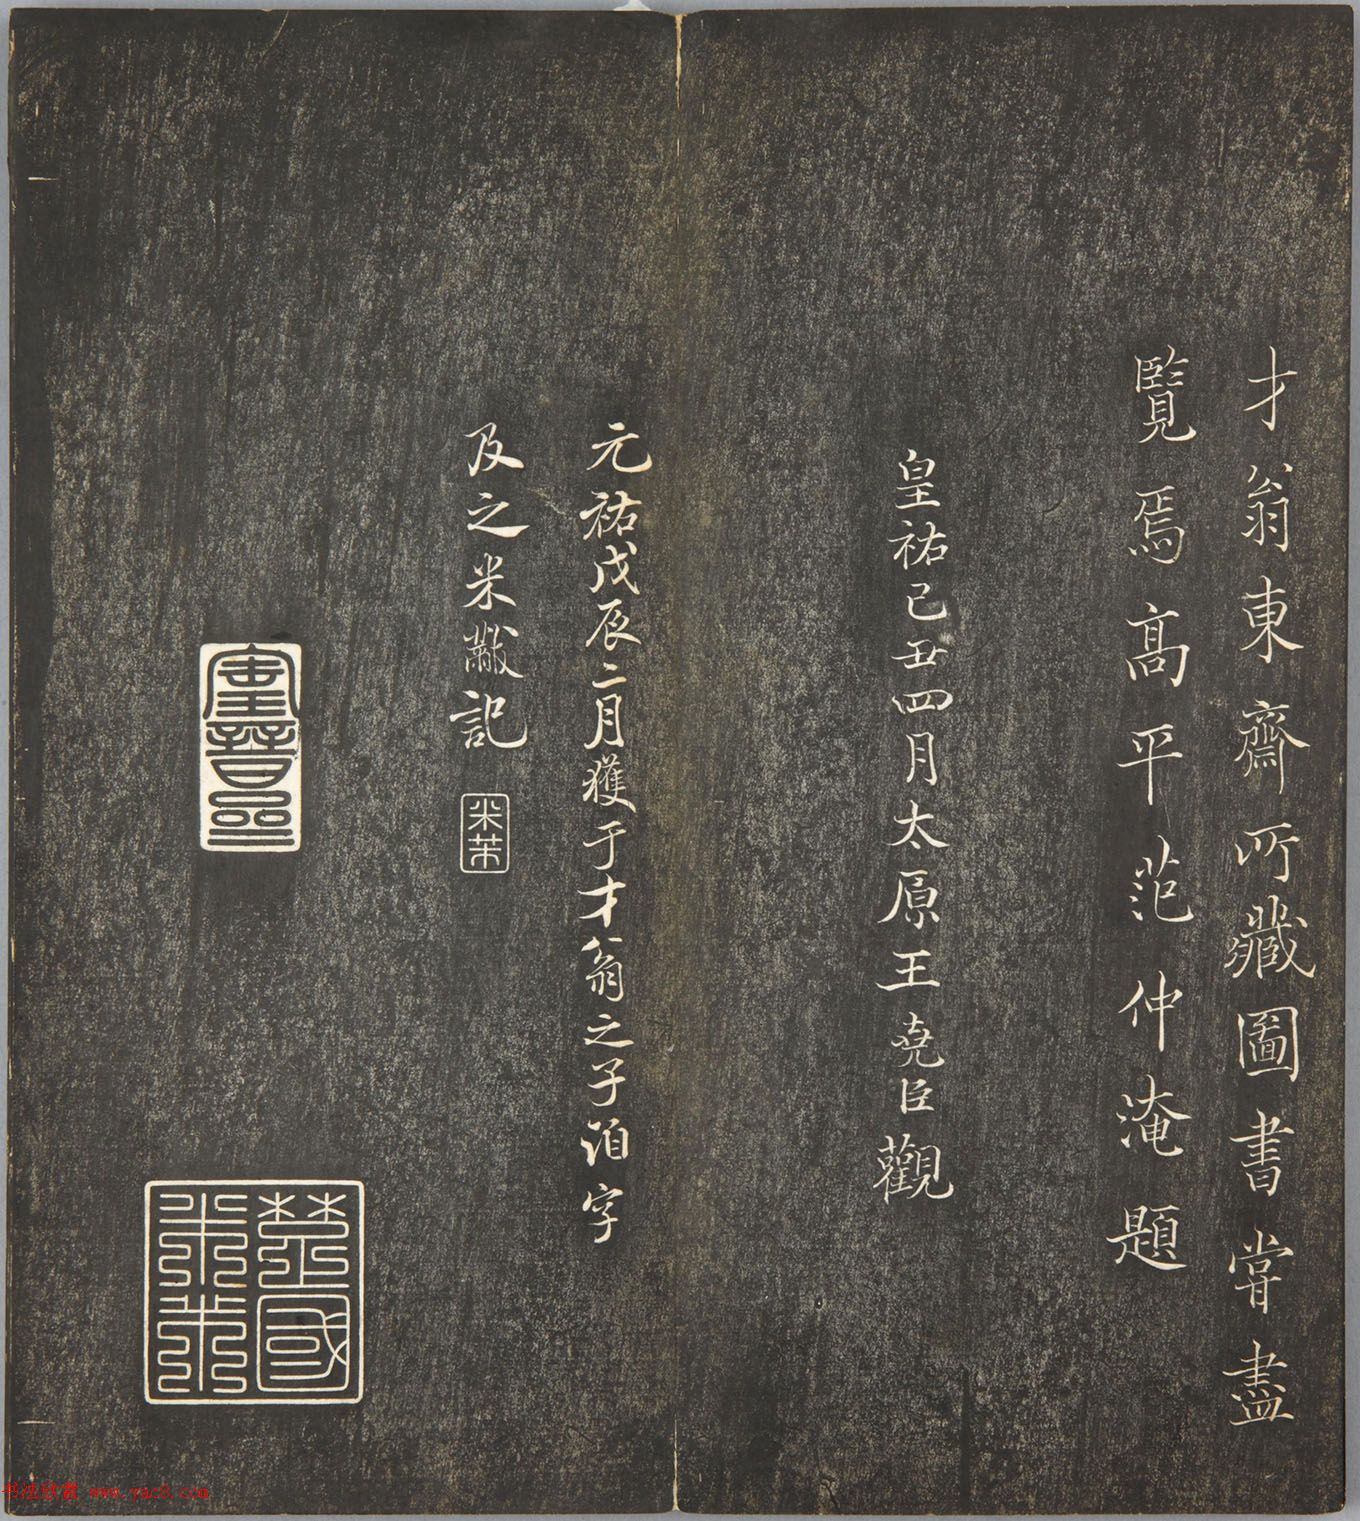 才翁東齋所藏圖書嘗盡
覽焉高平范仲淹題
皇祐己丑四月太原王堯臣觀
元祐戊辰二月獲于才翁之子洎字
及之米黻記
米芾
寶晉齋
楚國
米芾
书法欣赏 www.yac8.com